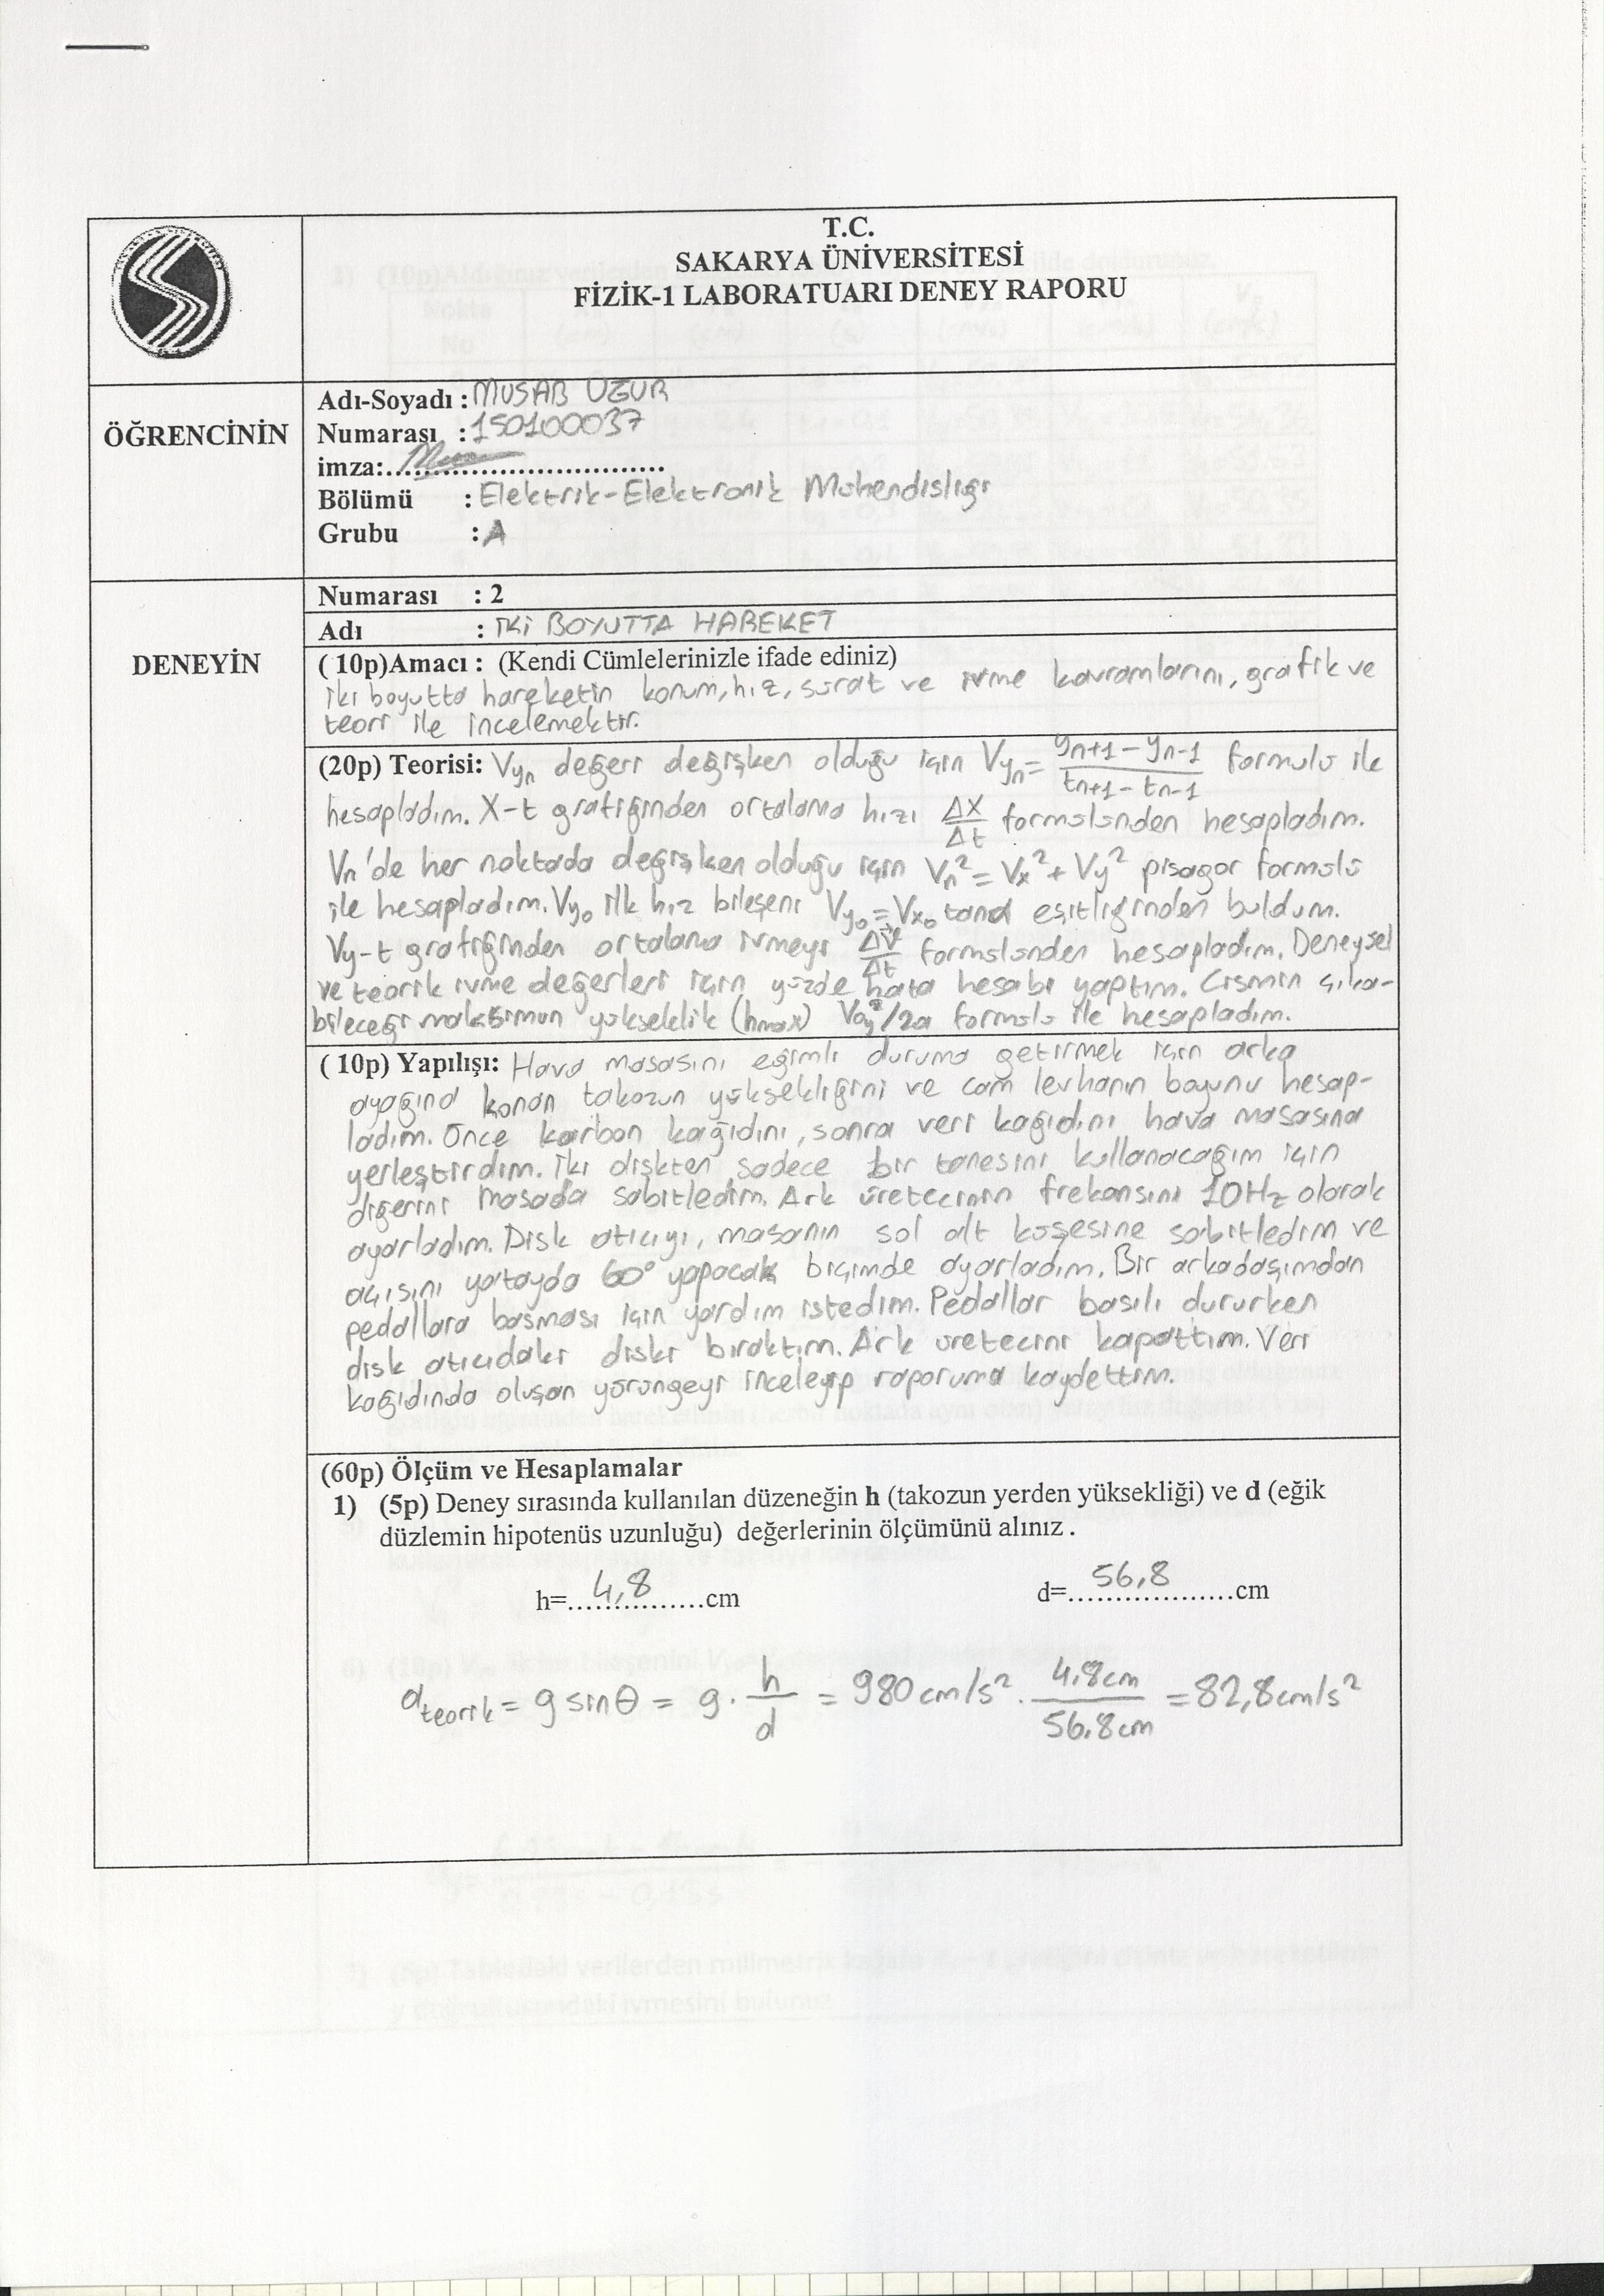 T.C.
SAKARYA ÜNİVERSİTESİ
FİZİK-1 LABORATUARI DENEY RAPORU
ÖĞRENCİNİN
Adı-Soyadı : MUSAB UZUR
Numarası : 150100037
imza:..................................
Bölümü : Elektrik-Elektronik Mühendisliği
Grubu : A
DENEYİN
Numarası : 2
Adı : İKİ BOYUTTA HAREKET
( 10p)Amacı : (Kendi Cümlelerinizle ifade ediniz)
İki boyutta hareketin konum, hız, sürat ve ivme kavramlarını, grafik ve
teori ile incelemektir.
(20p) Teorisi: Vyn değeri değişken olduğu için Vyn = (yn+1 - yn-1) / (tn+1 - tn-1) formülü ile
hesapladım. X-t grafiğinden ortalama hızı Δx/Δt formülünden hesapladım.
Vn'de her noktada değişken olduğu için Vn² = Vx² + Vy² pisagor formülü
ile hesapladım. Vy₀ ilk hız bileşeni Vy₀ = Vx₀ tanα eşitliğinden buldum.
Vy-t grafiğinden ortalama ivmeyi ΔV/Δt formülünden hesapladım. Deneysel
ve teorik ivme değerleri için yüzde hata hesabı yaptım. Cismin çıka-
bileceği maksimum yükseklik (hmax) V₀y²/2a formülü ile hesapladım.
( 10p) Yapılışı: Hava masasını eğimli duruma getirmek için arka
ayağına konan takozun yüksekliğini ve cam levhanın boyunu hesap-
ladım. Önce karbon kağıdını, sonra veri kağıdını hava masasına
yerleştirdim. İki diskten sadece bir tanesini kullanacağım için
diğerini masada sabitledim. Ark üretecinin frekansını 10Hz olarak
ayarladım. Disk atıcıyı, masanın sol alt köşesine sabitledim ve
açısını yatayda 60° yapacak biçimde ayarladım. Bir arkadaşımdan
pedallara basması için yardım istedim. Pedallar basılı dururken
disk atıcıdaki diski bıraktım. Ark üretecini kapattım. Veri
kağıdında oluşan yörüngeyi inceleyip raporuma kaydettim.
(60p) Ölçüm ve Hesaplamalar
1) (5p) Deney sırasında kullanılan düzeneğin h (takozun yerden yüksekliği) ve d (eğik
düzlemin hipotenüs uzunluğu) değerlerinin ölçümünü alınız .
h=...4,8...cm d=...56,8...cm
ateorik = g sinθ = g . h/d = 980 cm/s² . 4,8cm/56,8cm = 82,8cm/s²